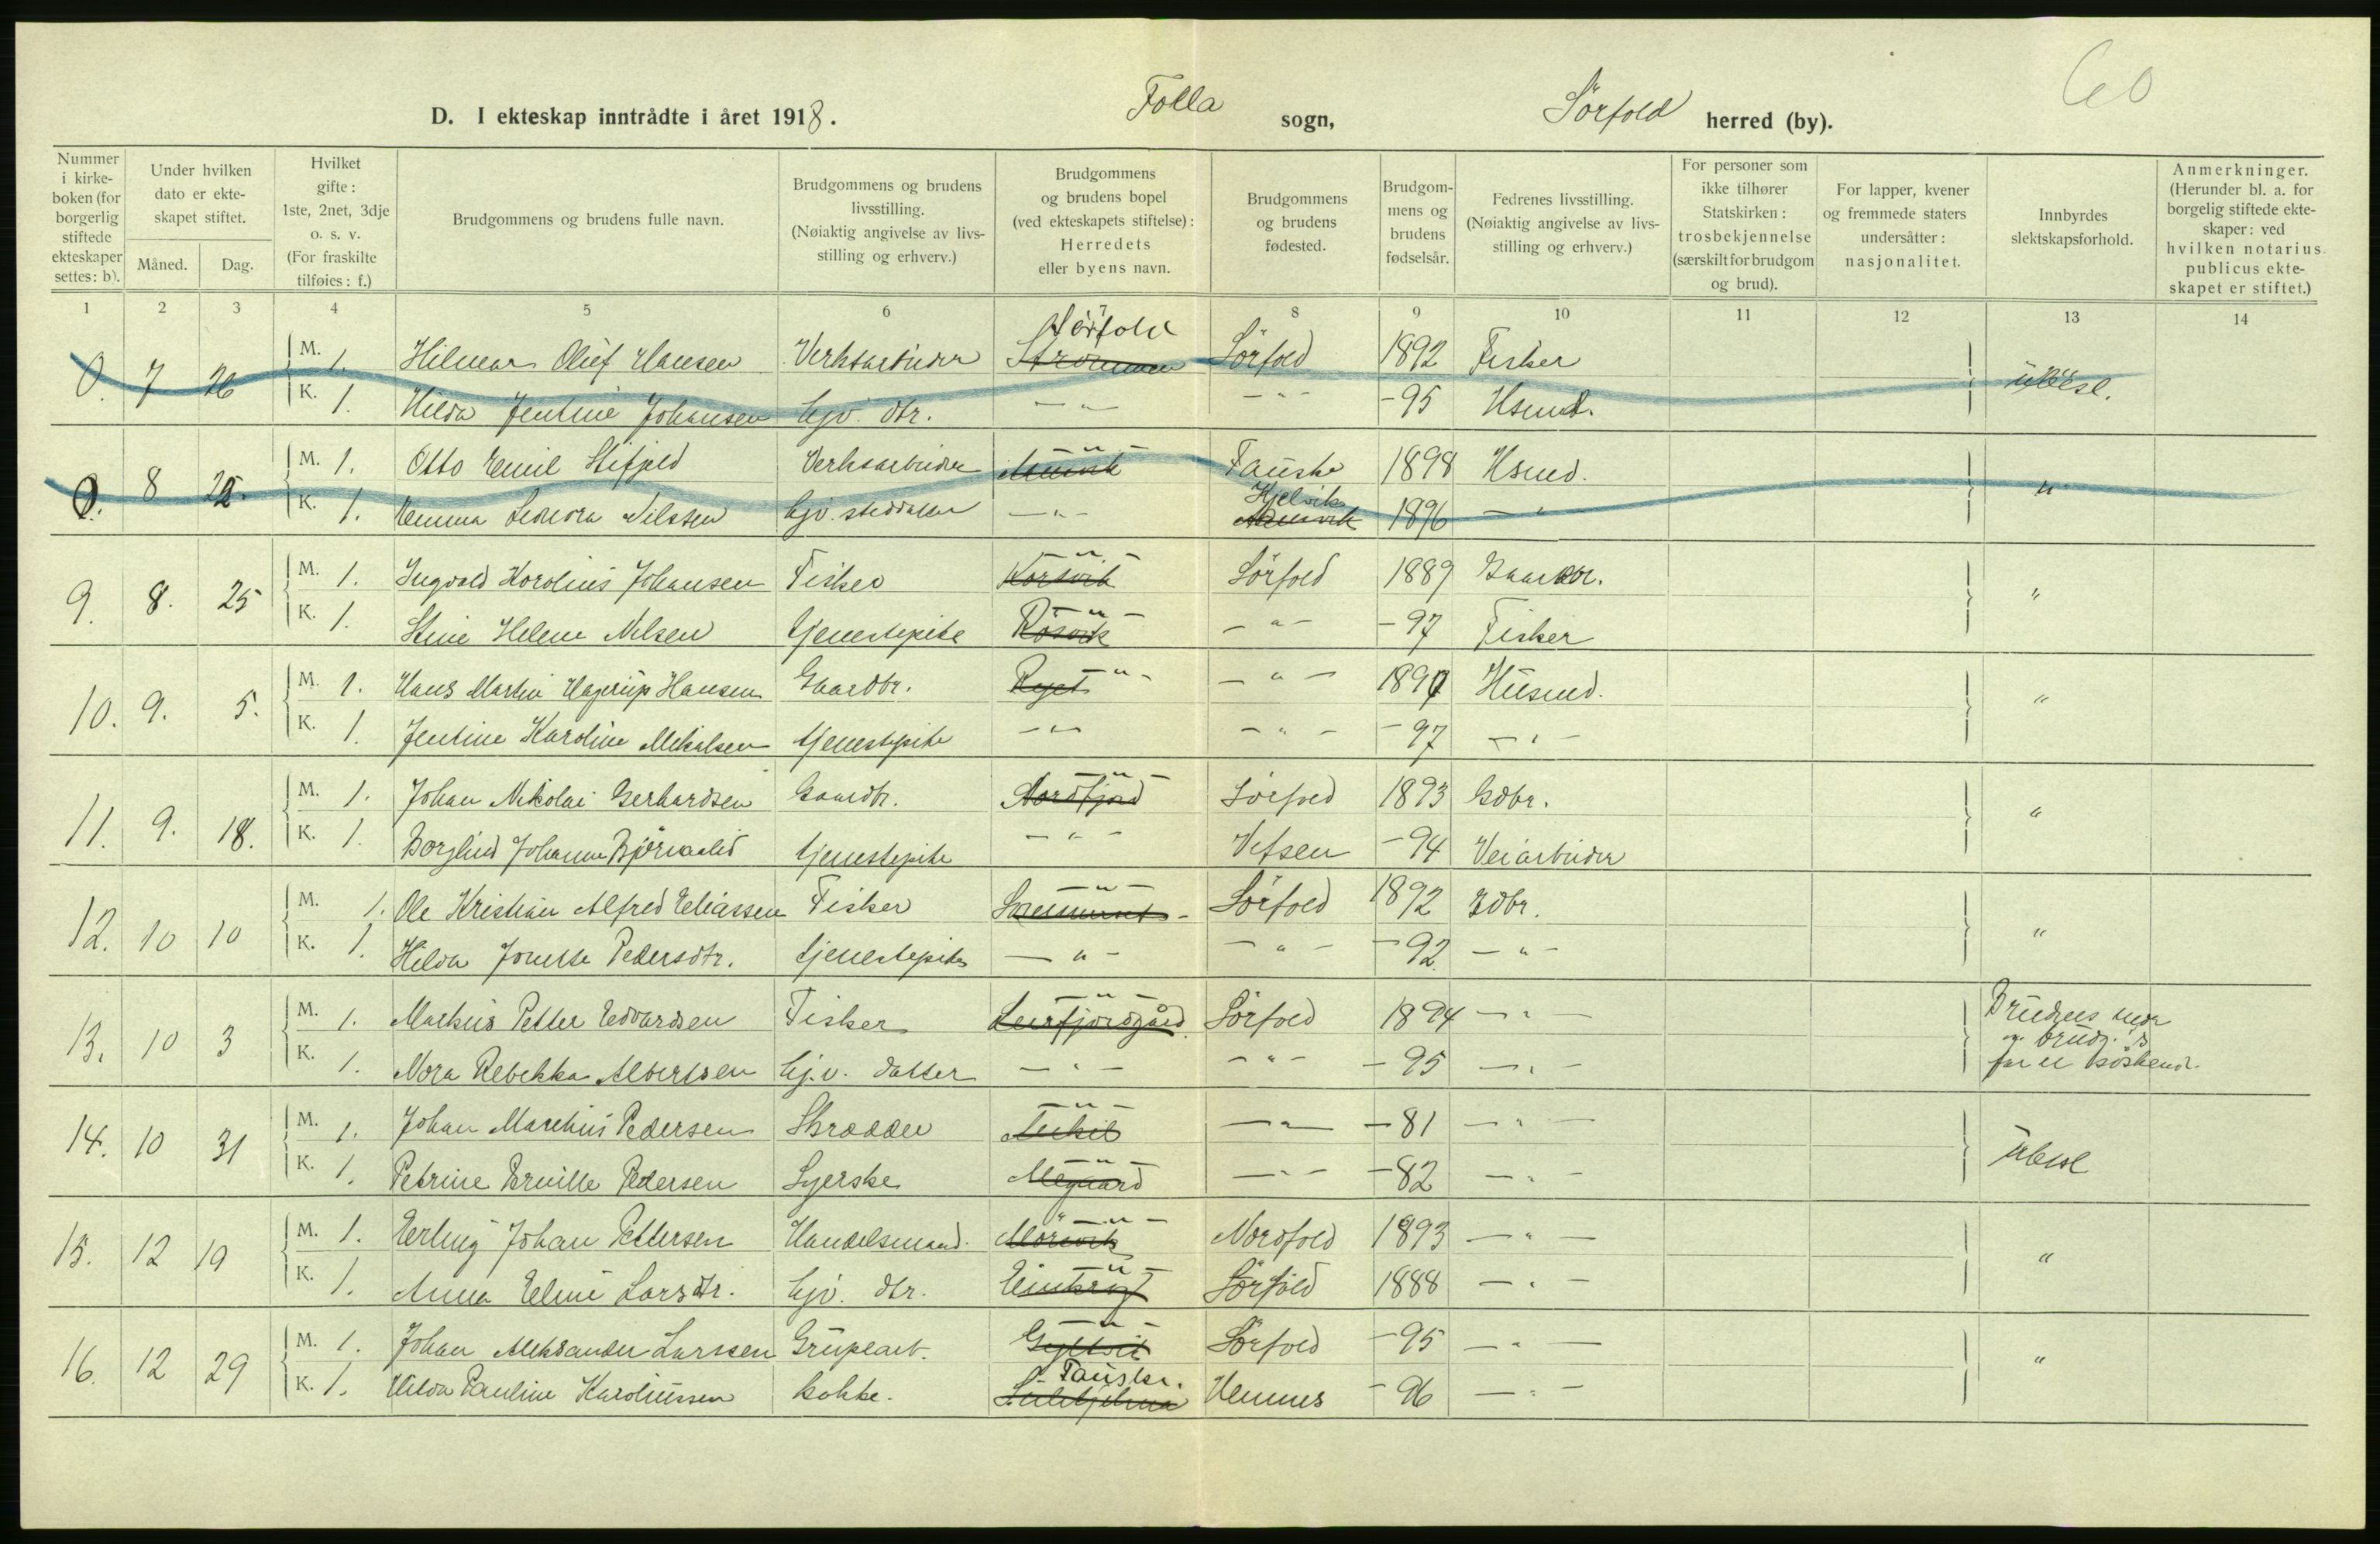 60
D. I ekteskap inntrådte i året 1918. Folla sogn, Sörfold herred (by).
Nummer i kirke-boken (for borgerlig stiftede ekteskaper settes: b).
Under hvilken dato er ekte-skapet stiftet.
Måned. Dag.
Hvilket gifte: 1ste, 2net, 3dje o. s. v. (For fraskilte tilføies: f.)
Brudgommens og brudens fulle navn.
Brudgommens og brudens livsstilling. (Nøiaktig angivelse av livs-stilling og erhverv.)
Brudgommens og brudens bopel (ved ekteskapets stiftelse): Herredets eller byens navn.
Brudgommens og brudens fødested.
Brudgom-mens og brudens fødselsår.
Fedrenes livsstilling. (Nøiaktig angivelse av livs-stilling og erhverv.)
For personer som ikke tilhører Statskirken: trosbekjennelse (særskilt for brudgom og brud).
For lapper, kvener og fremmede staters undersåtter: nasjonalitet.
Innbyrdes slektskapsforhold.
Anmerkninger. (Herunder bl. a. for borgelig stiftede ekte-skaper: ved hvilken notarius publicus ekte-skapet er stiftet.)
1 2 3 4 5 6 8 9 10 11 12 13 14
Sörfold
0. 7 26 M. 1. Hilmar Oluf Hansen Verksarbeider Strømmen Sörfold 1892 Fisker
K. 1. Hilda Jentine Johansen hjv. dtr. —"— —"— -95 Hsmd. ubesl.
0. 8 25. M. 1. Otto Emil Stifjeld Verksarbeider —"— Fauske 1898 Hsmd.
K. 1. Emma Leonora Nilssen hjv. steddatter —"— Kjelvik 1896 —"— "
9. 8. 25 M. 1. Ingvald Korolius Johansen Fisker —"— Korsvik Sörfold 1889 Gaardbr. "
K. 1. Stine Helene Nilsen tjenestepike —"— Rösvik —"— -97 Fisker
10. 9. 5. M. 1. Hans Martin Hagerup Hansen Gaardbr. —"— —"— 1890 Husmd. "
K. 1. Jentine Karoline Mikalsen tjenestepike —"— —"— -97 —"—
11. 9. 18. M. 1. Johan Nikolai Gerhardsen Gaardbr. —"— Nordfjord Sörfold 1893 Gdbr. "
K. 1. Borglind Johanne tjenestepike —"— Vefsen -94 Veiarbeider
12. 10 10 M. 1. Ole Kristian Alfred Eliassen Fisker —"— Sörfold 1892 Gdbr. "
K. 1. Hilda Jonette Pedersdtr. tjenestepike —"— —"— -92 —"—
13. 10 3 M. 1. Markus Petter Edvardsen Fisker —"— Leirfjordgård Sörfold 1894 —"— Brudens mor
K. 1. Nora Rebekka Albertsen hj.v. datter —"— —"— -95 —"— og brudg.'s far er söskende
14. 10 31 M. 1. Johan Marelius Pedersen Skrædder —"— —"— -81 —"— ubesl
K. 1. Petrine Pedersen Syerske —"— Megaard —"— -82 —"—
15. 12 19 M. 1. Erling Johan Pettersen Handelsmand. —"— Mörsvik Nordfold 1893 —"— "
K. 1. Anna Eline Larsdtr. hjv. dtr. —"— Sörfold 1888 —"—
16. 12 29 M. 1. Johan Aleksander Larssen Grubearb. —"— Gyltvik Sörfold -95 —"— "
K. 1. Hilda Pauline Karoliussen kokke. Fauske. Sulitjelma Hemnes -96 —"—